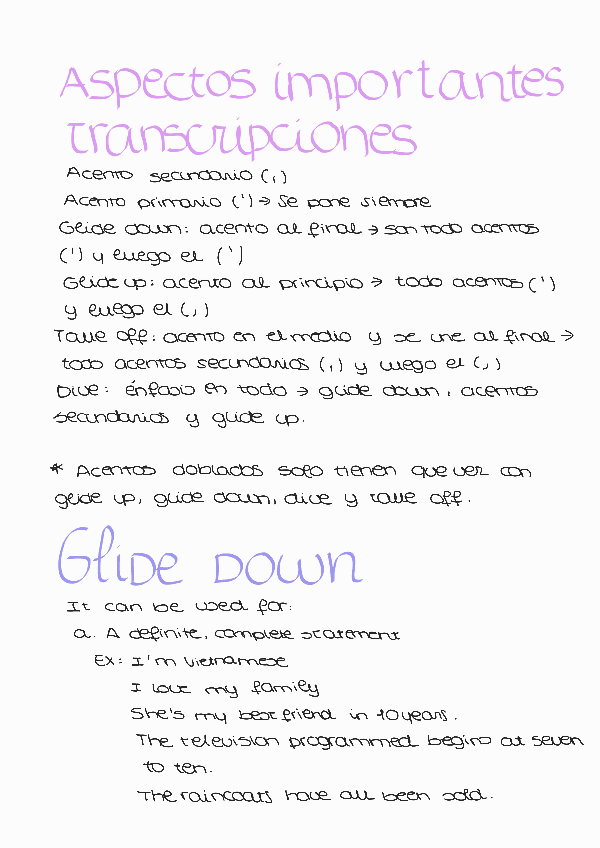 Aspectos importantes
transcripciones
Acento secundario (ˌ)
Acento primario (') → Se pone siempre
Glide down: acento al final → son todo acentos
(') y luego el (`)
Glide up: acento al principio → todo acentos (')
y luego el (ˏ)
Take off: acento en el medio y se une al final →
todo acentos secundarios (ˌ) y luego el (ˏ)
Dive: énfasis en todo → glide down, acentos
secundarios y glide up.
* Acentos doblados solo tienen que ver con
glide up, glide down, dive y take off.
Glide down
It can be used for:
a. A definite, complete statement
Ex: I'm Vietnamese
I love my family
She's my best friend in 10 years.
The television programmed begins at seven
to ten.
The raincoats have all been sold.